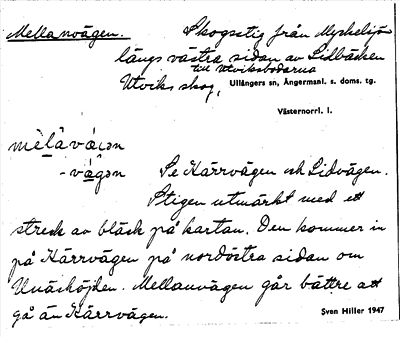 Mellanvägen. Skogsstig från Myckelsjön
längs västra sidan av Lidbäcken
till Utviksbodarna
Utviks skog, Ullångers sn, Ångermanl. s. doms. tg.
Västernorrl. l.
-vágən Se Kärrvägen och Lidvägen.
Stigen utmärkt med ett
streck av bläck på kartan. Den kommer in
på Kärrvägen på nordöstra sidan om
Mellanvägen går bättre att
gå än Kärrvägen.
Sven Hiller 1947